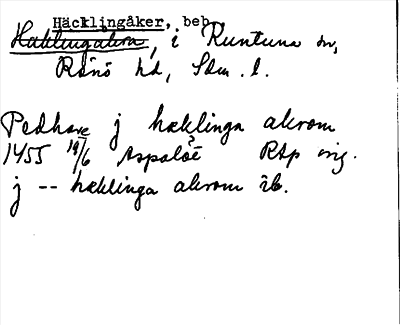 Häcklingåker, beb.
Hæklingakra, i Runtuna sn,
Rönö hd, Sdm. l.
Pedhare j hæklinga akrom
1455 19/6 Aspalöt RAp orig.
j -- hæklinga akrom ib.